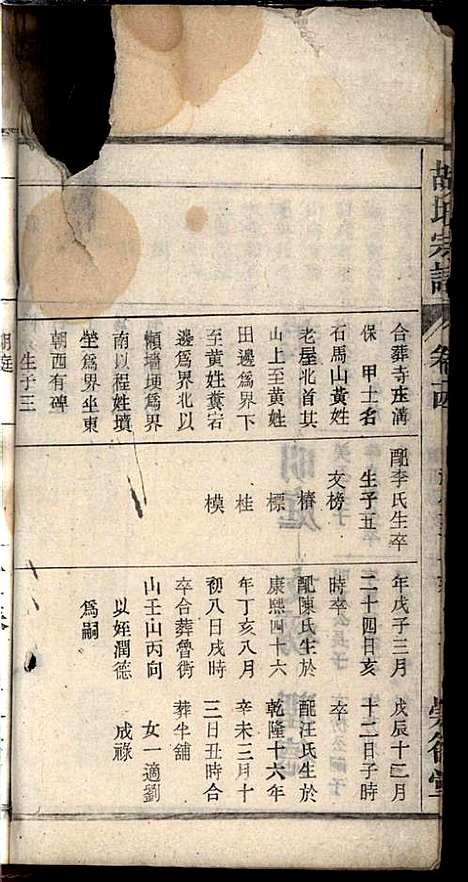 胡氏宗譜
卷十四
合葬寺庄溝
保　甲土名
石馬山黃姓
老屋北首其
山上至黃姓
田邊爲界下
至黃姓糞宕
邊爲界北以
懶墻埂爲界
南以程姓墳
塋爲界坐東
朝西有碑
生子三
配李氏生卒
生子五
文榜
楮
標
桂
模
年戊子三月
二十四日亥
時卒
配陳氏生於
康熙四十六
年丁亥八月
初八日戌時
卒合葬魯衖
山壬山丙向
以姪潤德
爲嗣
戊辰十二月
十二日子時
卒
配汪氏生於
乾隆十六年
辛未三月十
三日丑時合
葬牛舖
女一適劉
成祿